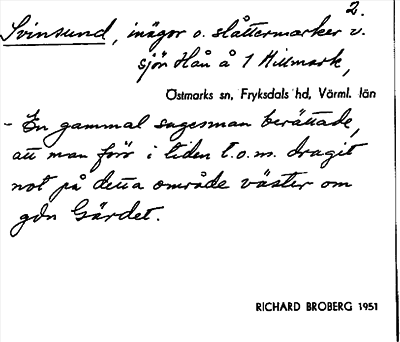 2.
Svinsund, inägor o. slåttermarker v.
sjön Håån å 1 Hillmark,
Östmarks sn, Fryksdals hd, Värml. län
- En gammal sagesman berättade,
att man förr i tiden t.o.m. dragit
not på detta område väster om
gdn Gärdet.
RICHARD BROBERG 1951